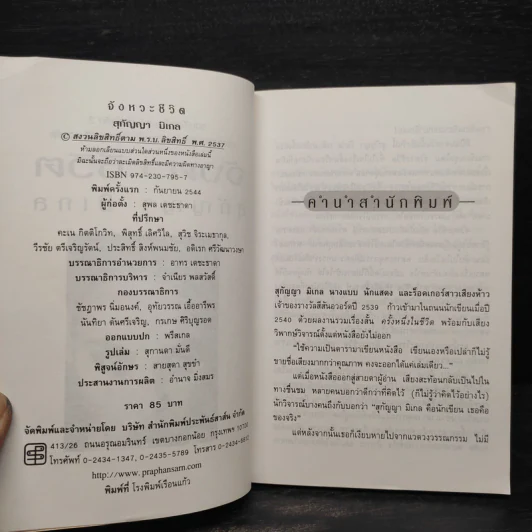 จังหวะชีวิต
สุกัญญา มิเกล
© สงวนลิขสิทธิ์ตาม พ.ร.บ.ลิขสิทธิ์ พ.ศ. 2537
ห้ามลอกเลียนแบบส่วนใดส่วนหนึ่งของหนังสือเล่มนี้
มิฉะนั้นจะถือว่าละเมิดลิขสิทธิ์และมีความผิดทางอาญา
ISBN 974-230-795-7
พิมพ์ครั้งแรก : กันยายน 2544
ผู้ก่อตั้ง : สุพล เตชะธาดา
ที่ปรึกษา
คะเน กิตติโกวิท, พิสุทธิ์ เลิศวิไล, สุวิช จิระเมธากุล,
วีรชัย ตรีเจริญรัตน์, ประสิทธิ์ สิงห์พนมชัย, อดิเรก ศรีวัฒนาวงษา
บรรณาธิการอำนวยการ : อาทร เตชะธาดา
บรรณาธิการบริหาร : จำเนียร พลสวัสดิ์
กองบรรณาธิการ
ชัชฎาพร นิ่มอนงค์, อุทัยวรรณ เอื้ออารีพร
นันทิยา ตันศรีเจริญ, กรเกษ ศิริบุญรอด
ออกแบบปก : พรีสเกล
รูปเล่ม : สุกานดา มั่นดี
พิสูจน์อักษร : สายสุดา สุขขำ
ประสานงานการผลิต : อำนาจ มิ่งสมร
ราคา 85 บาท
จัดพิมพ์และจำหน่ายโดย บริษัท สำนักพิมพ์ประพันธ์สาส์น จำกัด
413/26 ถนนอรุณอมรินทร์ เขตบางกอกน้อย กรุงเทพฯ 10700
โทรศัพท์ 0-2434-1347, 0-2435-5789 โทรสาร 0-2434-
http://www.praphansarn.com
พิมพ์ที่ โรงพิมพ์เรือนแก้ว
คำนำสำนักพิมพ์
สุกัญญา มิเกล นางแบบ นักแสดง และร็อคเกอร์สาวเสียงห้าว
เจ้าของรางวัลสีสันอวอร์ดปี 2539 ก้าวเข้ามาในถนนนักเขียนเมื่อปี
2540 ด้วยผลงานรวมเรื่องสั้น ครั้งหนึ่งในชีวิต พร้อมกับเสียง
วิพากษ์วิจารณ์ตั้งแต่หนังสือยังไม่ออก
"ใช้ความเป็นดารามาเขียนหนังสือ เขียนเองหรือเปล่าก็ไม่รู้
ขายชื่อเสียงมากกว่าคุณภาพ คงจะออกได้แค่เล่มเดียว..."
แต่เมื่อหนังสือออกสู่สายตาผู้อ่าน เสียงสะท้อนกลับเป็นไปใน
ทางชื่นชม หลายคนบอกว่าดีกว่าที่คิดไว้ (ก็ไม่รู้ว่าคิดไว้อย่างไร)
นักวิจารณ์บางคนถึงกับบอกว่า "สุกัญญา มิเกล คือนักเขียน เธอคือ
ของจริง"
แต่หลังจากนั้นเธอก็เงียบหายไปจากแวดวงวรรณกรรม ไม่มี